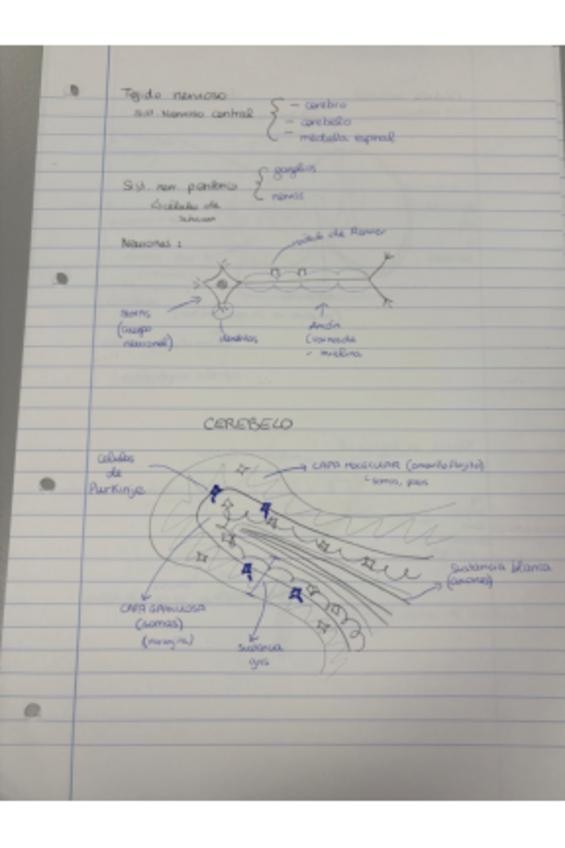 Tejido nervioso
Sist. Nervioso central
- cerebro
- cerebelo
- médula espinal
Sist. ner. periférico
ganglios
nervios
células de
Neuronas:
nódulo de Ranvier
somas
(cuerpo
neuronal)
dendritas
Axón
(vaina de
mielina
CEREBELO
Células
de
Purkinje
CAPA MOLECULAR (amarillo flojito)
somas, pocos
Sustancia blanca
(axones)
CAPA GRANULOSA
(somas)
(naranjita)
Sustancia
gris